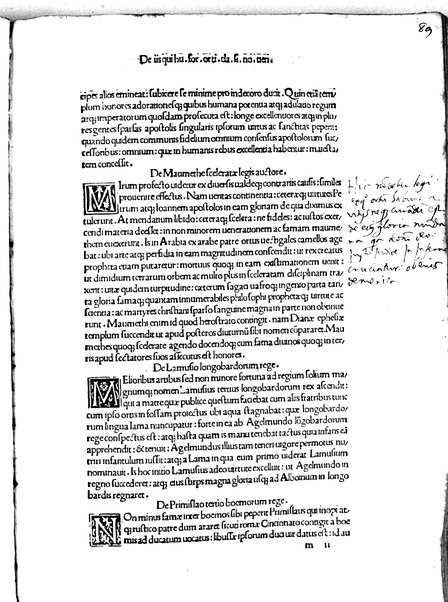 89
De iis qui hu. for. orti. da. s. no. uen.
cipes alios emineat: subicere se minime pro indecoro duxit. Quin etiã tem
plum honores adorationesq; quibus humana potentia atq; adulatio regum
atq; imperatorum quosdam prosecuta est: longe excellentiores atq; in plu
res gentes sparsas apostolis singularis ipsorum uirtus ac sanctitas peperit
quando quidem communis fidelium omnium consensus apostolorum suc
cessoribus: omnium: quæ in humanis rebus excellentia habentur: maiesta
tem concessit.
De Maumethe sceleratæ legis auctore.
MIrum profecto uideri ex diuersis ualdeq; contrariis causis: similes
prouenire effectus. Nam ueritas continentia: ceteræq; uirtutes Pe
trum atq; Joannem apostolos in eam gloriam de qua diximus ex
tulerunt. At mendatium libido: ceteraq; scelera: ne fideles: ac iustos exer
cendi materia deesset: in non minorem uenerationem ac famam maume
them euexerunt. Is in Arabia ex arabe patre ortus uestigales camellos age
bat: ubi arte atq; perfidia in eam magnitudinem conscendit: ut rex creatus
propheta etiam putaretur: motius quoq; in eam existimationem uenit:
ut dimidium terrarum orbem ac multo plus in sceleratam disciplinam tra
xerit: uitæ quidem turpitudine: cæterum sagaci ua froq; ingenio parta tan
ta gloria famaq; quantam innumerabiles philosophi prophetæq; uirtute ac
scientia: ac martyres christiani sparso sanguine magna in parte non obtinue
runt. Maumethi enim id quod herostrato contingit. nam Dianæ ephesiæ
templum succendit ut apud posteros diuturnũ sibi nomen cõpararet. Mau
methes quoq; scelerate agendo docendoq; cum fama diuinos quoq; in ter
ris apud sectatores suos assecutus est honores.
De Lamusio longobardorum rege.
MElioribus artibus sed non minore fortuna ad regium solium ma
gnumq; nomen Lamusius tertius longobardorum rex ascendit:
qui a matre quæ publice quæstum faciebat cum aliis fratribus tunc
cum ipso ortis in fossam proiectus ubi aqua stagnabat: quæ longobardo
rum lingua lama nuncupatur: forte in ea ab Agelmundo lõgobardorum
rege conspectus est: atq; hasta quam is manu tenebat tactus quia infans eã
apprehendit: &amp; tenuit: Agelmundus illius tam teneri uigore permotus nu
triri infantulum iussit: atq; a Lama in qua eum primo uiderat Lamusium
nominauit. Is hoc initio Lamusius adeo uirtute excelluit: ut Agelmundo in
regno succederet: atq; eius stirps magna gloria usq; ad Alboinum in longo
bardis regnaret.
De Primislao tertio boemorum rege.
NOn minus famæ inter boemos sibi peperit Primislaus qui inopi at
q; rustico patre dum araret sicuti romæ Cincinnato contigit a boe
mis ad ducatum uocatus: libussæ ipsorum duci uir datus est: id au
m ii